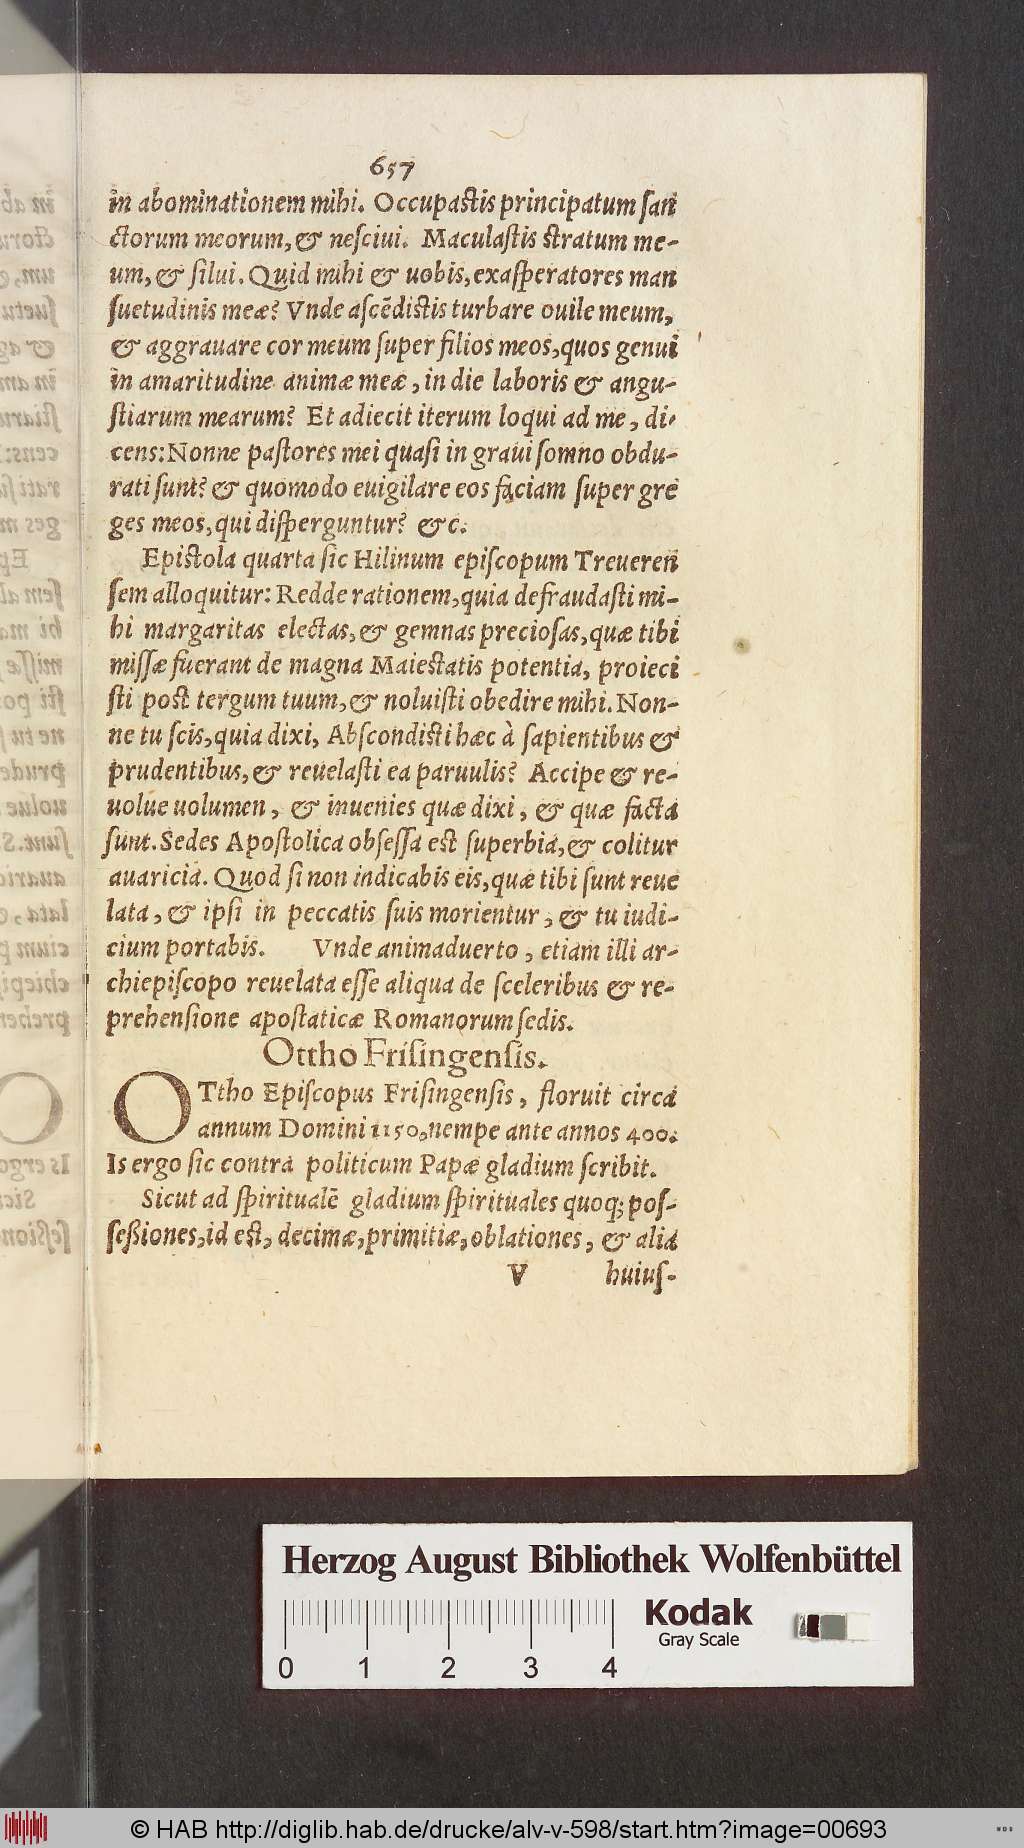 657
in abominationem mihi. Occupastis principatum san
ctorum meorum, & nesciui. Maculastis stratum me-
um, & silui. Quid mihi & uobis, exasperatores man
suetudinis meæ? Vnde ascēdistis turbare ouile meum,
& aggrauare cor meum super filios meos, quos genui
in amaritudine animæ meæ, in die laboris & angu-
stiarum mearum? Et adiecit iterum loqui ad me, di-
cens: Nonne pastores mei quasi in graui somno obdu-
rati sunt? & quomodo euigilare eos faciam super gre
ges meos, qui disperguntur? &c.
Epistola quarta sic Hilinum episcopum Treueren
sem alloquitur: Redde rationem, quia defraudasti mi-
hi margaritas electas, & gemnas preciosas, quæ tibi
missæ fuerant de magna Maiestatis potentia, proieci
sti post tergum tuum, & noluisti obedire mihi. Non-
ne tu scis, quia dixi, Abscondisti hæc à sapientibus &
prudentibus, & reuelasti ea paruulis? Accipe & re-
uolue uolumen, & inuenies quæ dixi, & quæ facta
sunt. Sedes Apostolica obsessa est superbia, & colitur
auaricia. Quod si non indicabis eis, quæ tibi sunt reue
lata, & ipsi in peccatis suis morientur, & tu iudi-
cium portabis. Vnde animaduerto, etiam illi ar-
chiepiscopo reuelata esse aliqua de sceleribus & re-
prehensione apostaticæ Romanorum sedis.
Ottho Frisingensis.
OTtho Episcopus Frisingensis, floruit circa
annum Domini 1150, nempe ante annos 400.
Is ergo sic contra politicum Papæ gladium scribit.
Sicut ad spiritualē gladium spirituales quoq; pos-
seßiones, id est, decimæ, primitiæ, oblationes, & alia
V huius-
Herzog August Bibliothek Wolfenbüttel
Kodak
Gray Scale
0 1 2 3 4
© HAB http://diglib.hab.de/drucke/alv-v-598/start.htm?image=00693